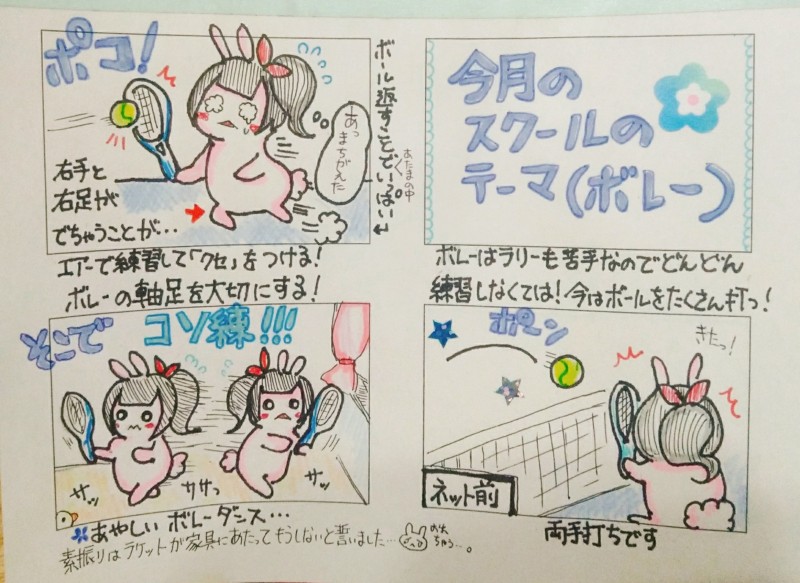 今月の
スクールの
テーマ(ボレー)
ボレーはラリーも苦手なのでどんどん
練習しなくては!今はボールをたくさん打つ!
ポーン
きたっ!
ネット前
両手打ちです
ポコ!
ボール返すことでいっぱい
あたまの中
あっ
まちがえた
右手と
右足が
でちゃうことが…
エアーで練習して「クセ」をつける!
ボレーの軸足を大切にする!
そこで
コソ練!!!
サッ
ササっ
サッ
あやしいボレーダンス…
素振りはラケットが家具にあたってもうしないと誓いました…
おれちゃう…。